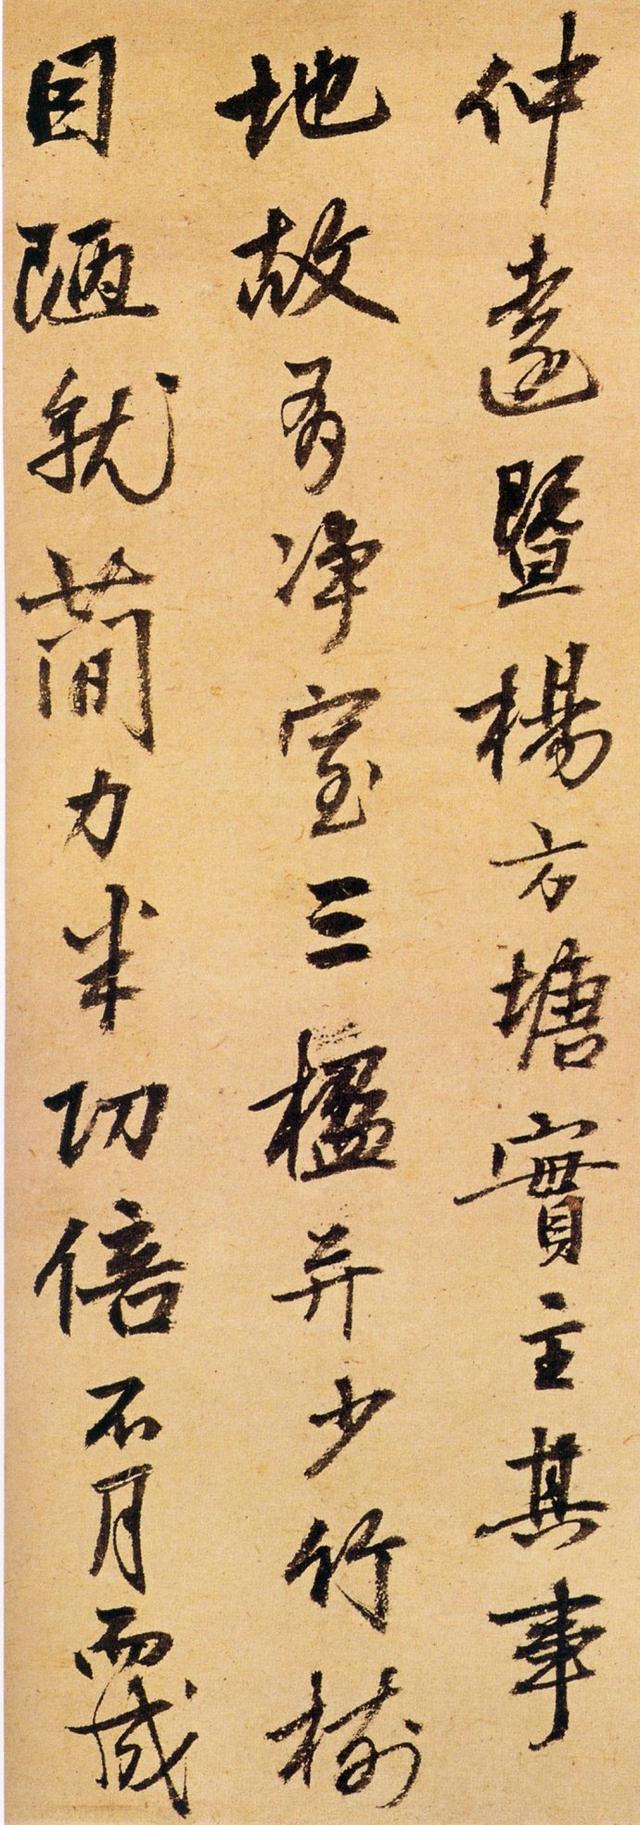 仲遠暨楊方塘實主其事
地故有淨室三楹并少竹樹
因陋就蕑力半功倍不月而成